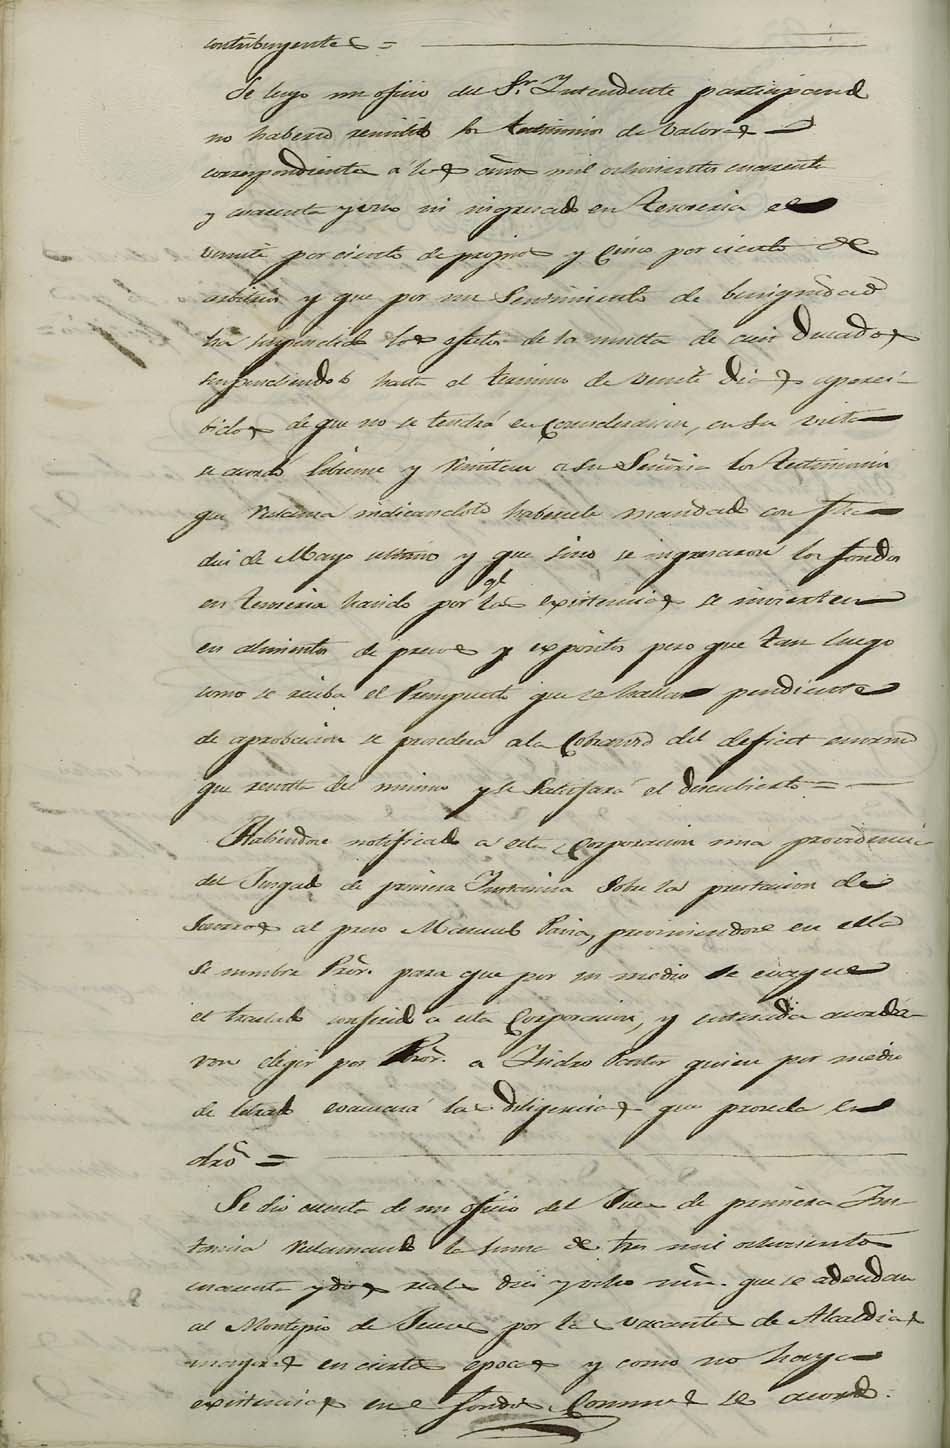 contribuyentes =
Se leyo un oficio del Sr. Intendente participand
no haberse remitido los testimonios de valores
correspondientes á los años mil ochocientos cuarenta
y cuarenta y uno ni ingresado en tesoreria el
veinte por ciento de propios y cinco por ciento de
arbitrios y que por un sentimiento de benignidad
ha suspendido los efectos de la multa de cien Ducados
suspendiendolo hasta el termino de veinte dias aperci-
bidos de que no se tendrá en consideracion, en su vista
se acordó librar y remitir a su Señoria los testimonios
que reclama indicandole haberselo mandado con fha
diez de Mayo ultimo y que sino se ingresaron los fondos
en tesoreria habido por ql las existencias se invierten
en alimentos de presos y expositos pero que tan luego
como se reciba el Presupuesto que se hallan pendiente
de aprobacion se procedera a la cobranza del deficit enorme
que resulta del mismo y se satisfará el descubierto =
Habiendose notificado a esta Corporacion una providencia
del Juzgado de primera Instancia sobre la prestacion de
socorros al preso Manuel Paria, previniendose en ella
se nombre Pror. para que por su medio se evague
el traslado conferido a esta Corporacion, y enterada acorda-
ron elegir por Pror. a Isidro Pastor quien por medio
de letrado evacuará las diligencias que proceda en
dro =
Se dio cuenta de un oficio del Juez de primera Ins-
tancia reclamando la suma de tres mil ochocientos
cuarenta y dos reales diez y ocho mrs. que se adeudan
al Montepio de Jueces por las vacantes de Alcaldias
mayores en ciertas epocas y como no haya
existencias en el fondo Comun se acordó.